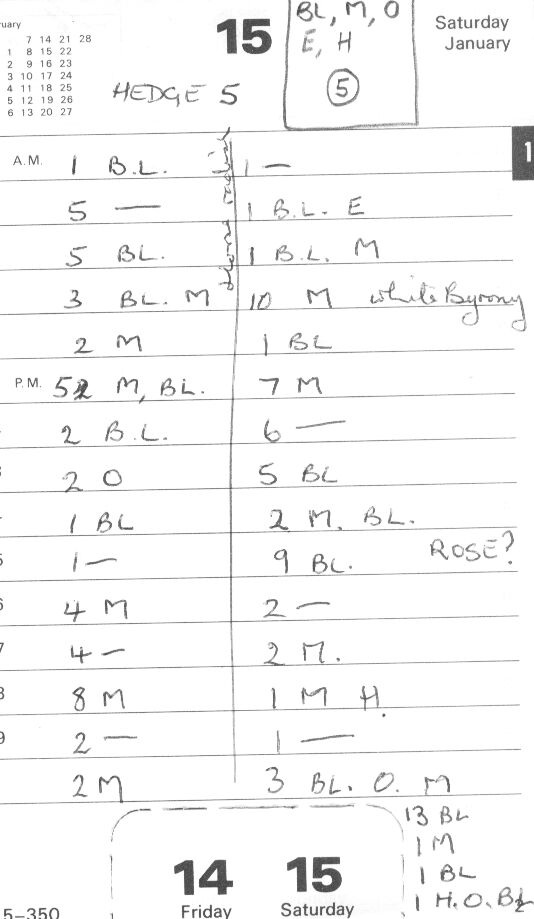 ruary
7 14 21 28
1 8 15 22
2 9 16 23
3 10 17 24
4 11 18 25
5 12 19 26
6 13 20 27
15
BL, M, O
E, H
5
Saturday
January
HEDGE 5
1
A.M. 1 B.L. 1 —
5 — 1 B.L. E
5 BL. 1 B.L. M
3 BL. M 10 M white Byrony
2 M 1 BL
P.M. 52 M, BL. 7 M
2 B.L. 6 —
2 O 5 BL
1 BL 2 M. BL.
5 1 — 9 BL. ROSE?
6 4 M 2 —
7 4 — 2 M.
8 8 M 1 M H.
9 2 — 1 —
2 M 3 BL. O. M
13 BL
1 M
1 BL
1 H.O. BL
14 15
Friday Saturday
5–350